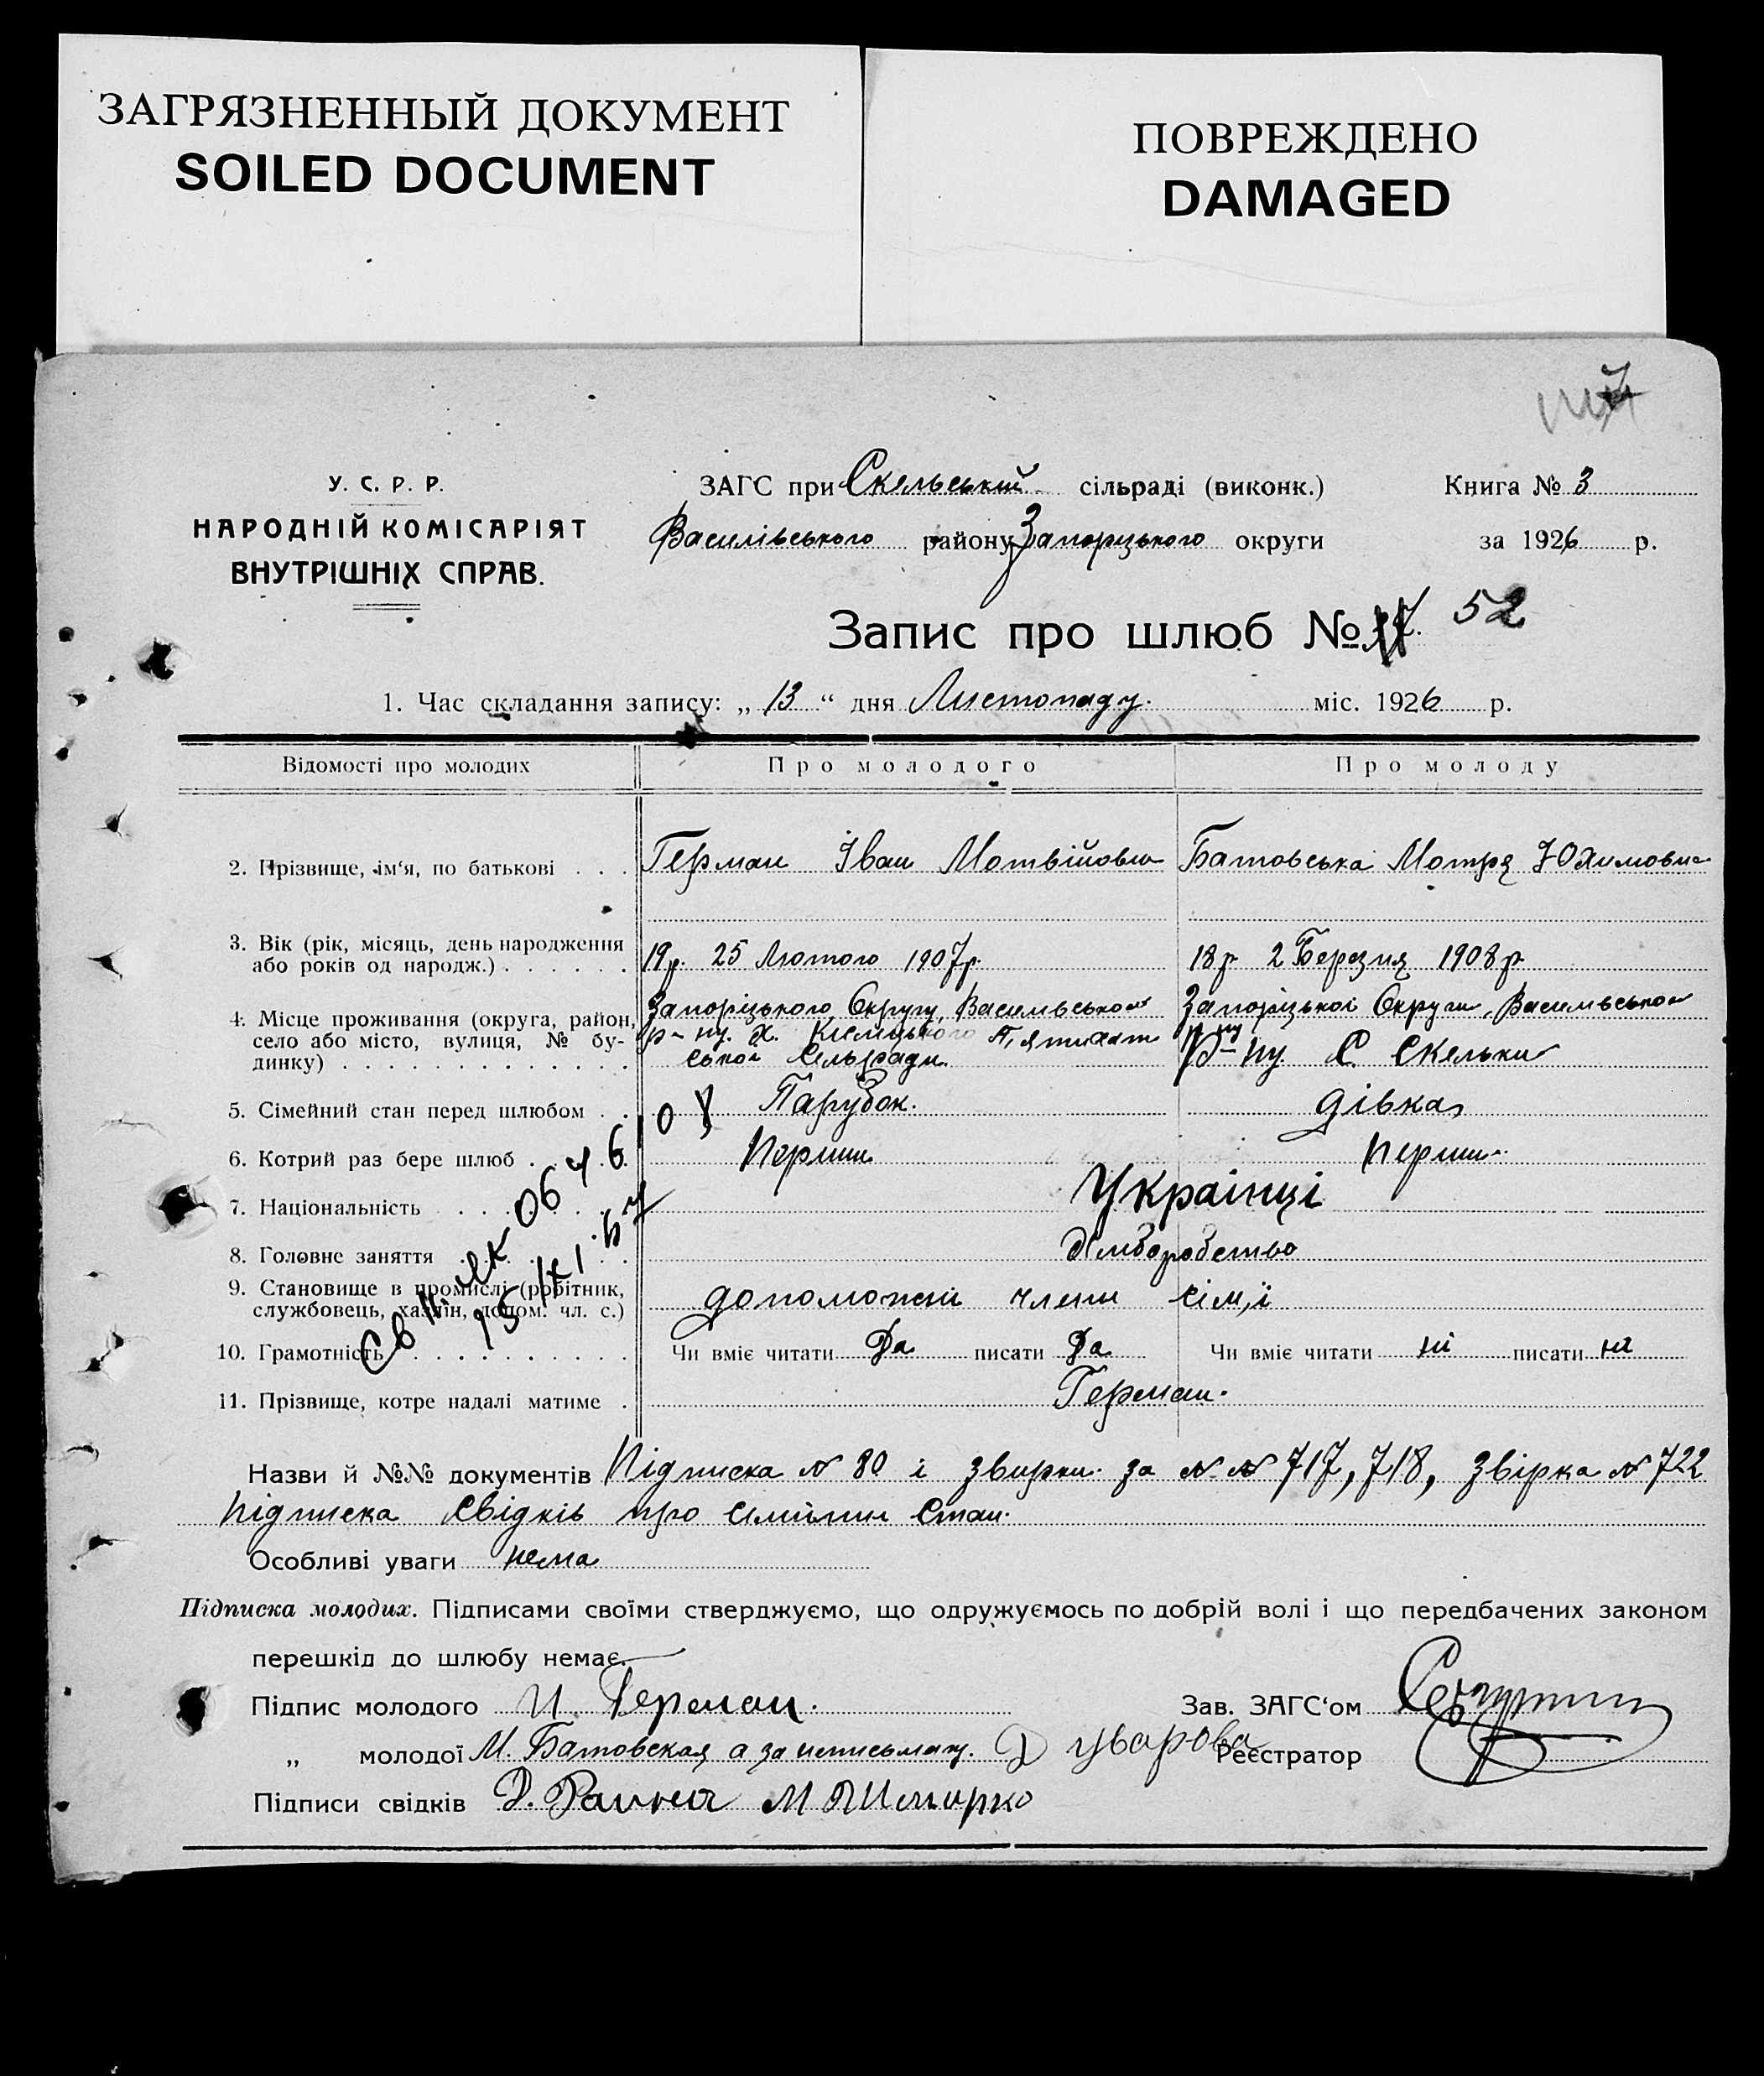 ЗАГРЯЗНЕННЫЙ ДОКУМЕНТ
SOILED DOCUMENT
ПОВРЕЖДЕНО
DAMAGED
У. С. Р. Р.
НАРОДНІЙ КОМІСАРІЯТ
ВНУТРІШНІХ СПРАВ.
ЗАГС при Скельській сільраді (виконк.)
Василівського району Запорізького округи
Книга № 3
за 1926 р.
Запис про шлюб № 52
1. Час складання запису: „ 13 “ дня Листопаду. міс. 1926 р.
Відомості про молодих Про молодого Про молоду
2. Прізвище, ім‘я, по батькові . . . Герман Іван Мотвійович Батовська Мотря Юхимовна
3. Вік (рік, місяць, день народження
або років од народж.) . . . . . . 19 р. 25 Лютого 1907 р. 18 р 2 Березня 1908 р
4. Місце проживання (округа, район,
село або місто, вулиця, № бу-
динку) . . . . . . . . . . . . .
Запоріцького Округу, Василівського
р-ну. Х. П'ятихат
ської Сільради.
Запоріцької Округи, Василівської
р-ну С. Скельки
5. Сімейний стан перед шлюбом . . Парубок. дівка
6. Котрий раз бере шлюб . . . . . Перший Перший
7. Національність . . . . . . . . Українці
8. Головне заняття . . . . . . . . Хліборобство
9. Становище в промислі (робітник,
службовець, хазяїн, допом. чл. с.) допоможні члени сім,ї
10. Грамотність . . . . . . . . . . Чи вміє читати Да писати Да Чи вміє читати ні писати ні
11. Прізвище, котре надалі матиме . Герман.
Назви й №№ документів Підписка № 80 і звірки за №№ 717, 718, звірка № 722
Підписка свідків про сімейний стан.
Особливі уваги нема
Підписка молодих. Підписами своїми стверджуємо, що одружуємось по добрій волі і що передбачених законом
перешкід до шлюбу немає.
Підпис молодого И. Герман. Зав. ЗАГС‘ом
„ молодої М. Батовская а за неписьмену. Д Уварова Реєстратор
Підписи свідків